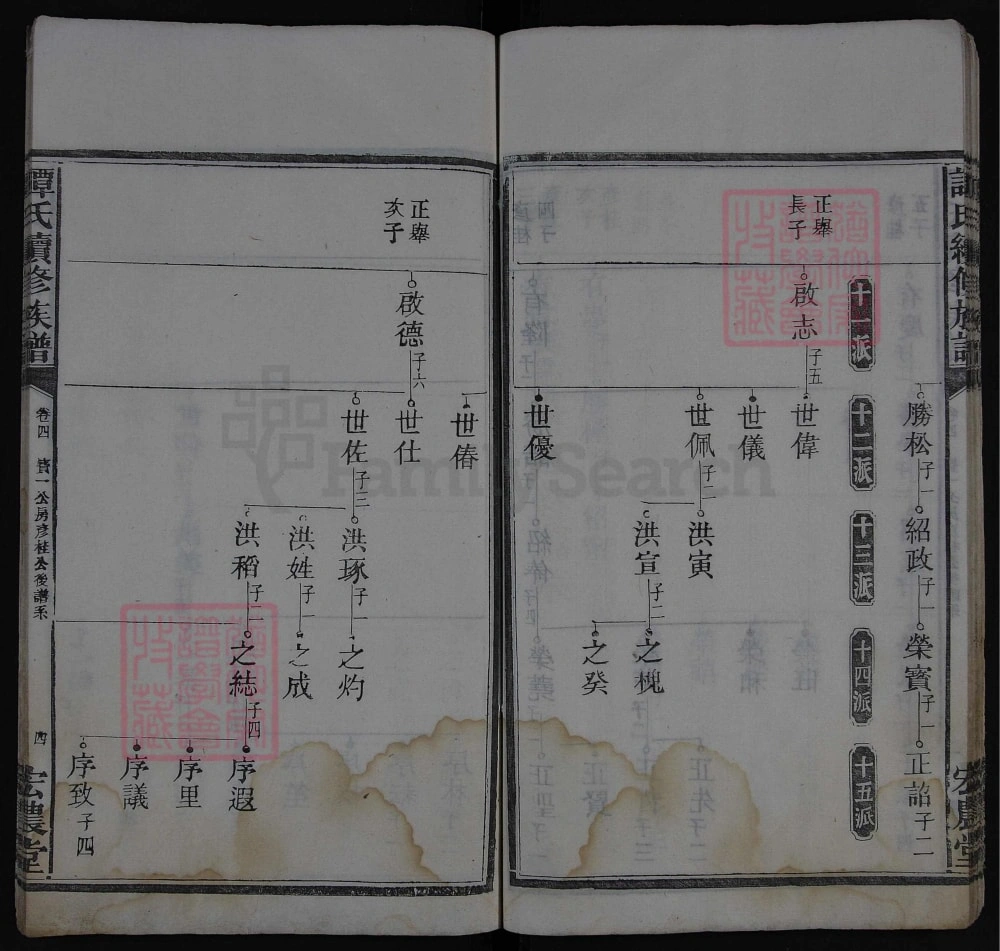 勝松 子一
紹政 子一
榮賓 子一
正詔 子二
十一派
十二派
十三派
十四派
十五派
正舉
長子
啟志 子五
世偉
世儀
世佩 子二
世優
洪寅
洪宣 子二
之槐
之癸
正舉
次子
啟德 子六
世偆
世仕
世佐 子三
洪琢 子一
洪姓 子一
洪稻 子二
之灼
之成
之結 子四
序遐
序里
序議
序致 子四
譚氏續修族譜
卷四
賓一公房彥桂公後譜系
四
宏農堂
FamilySearch